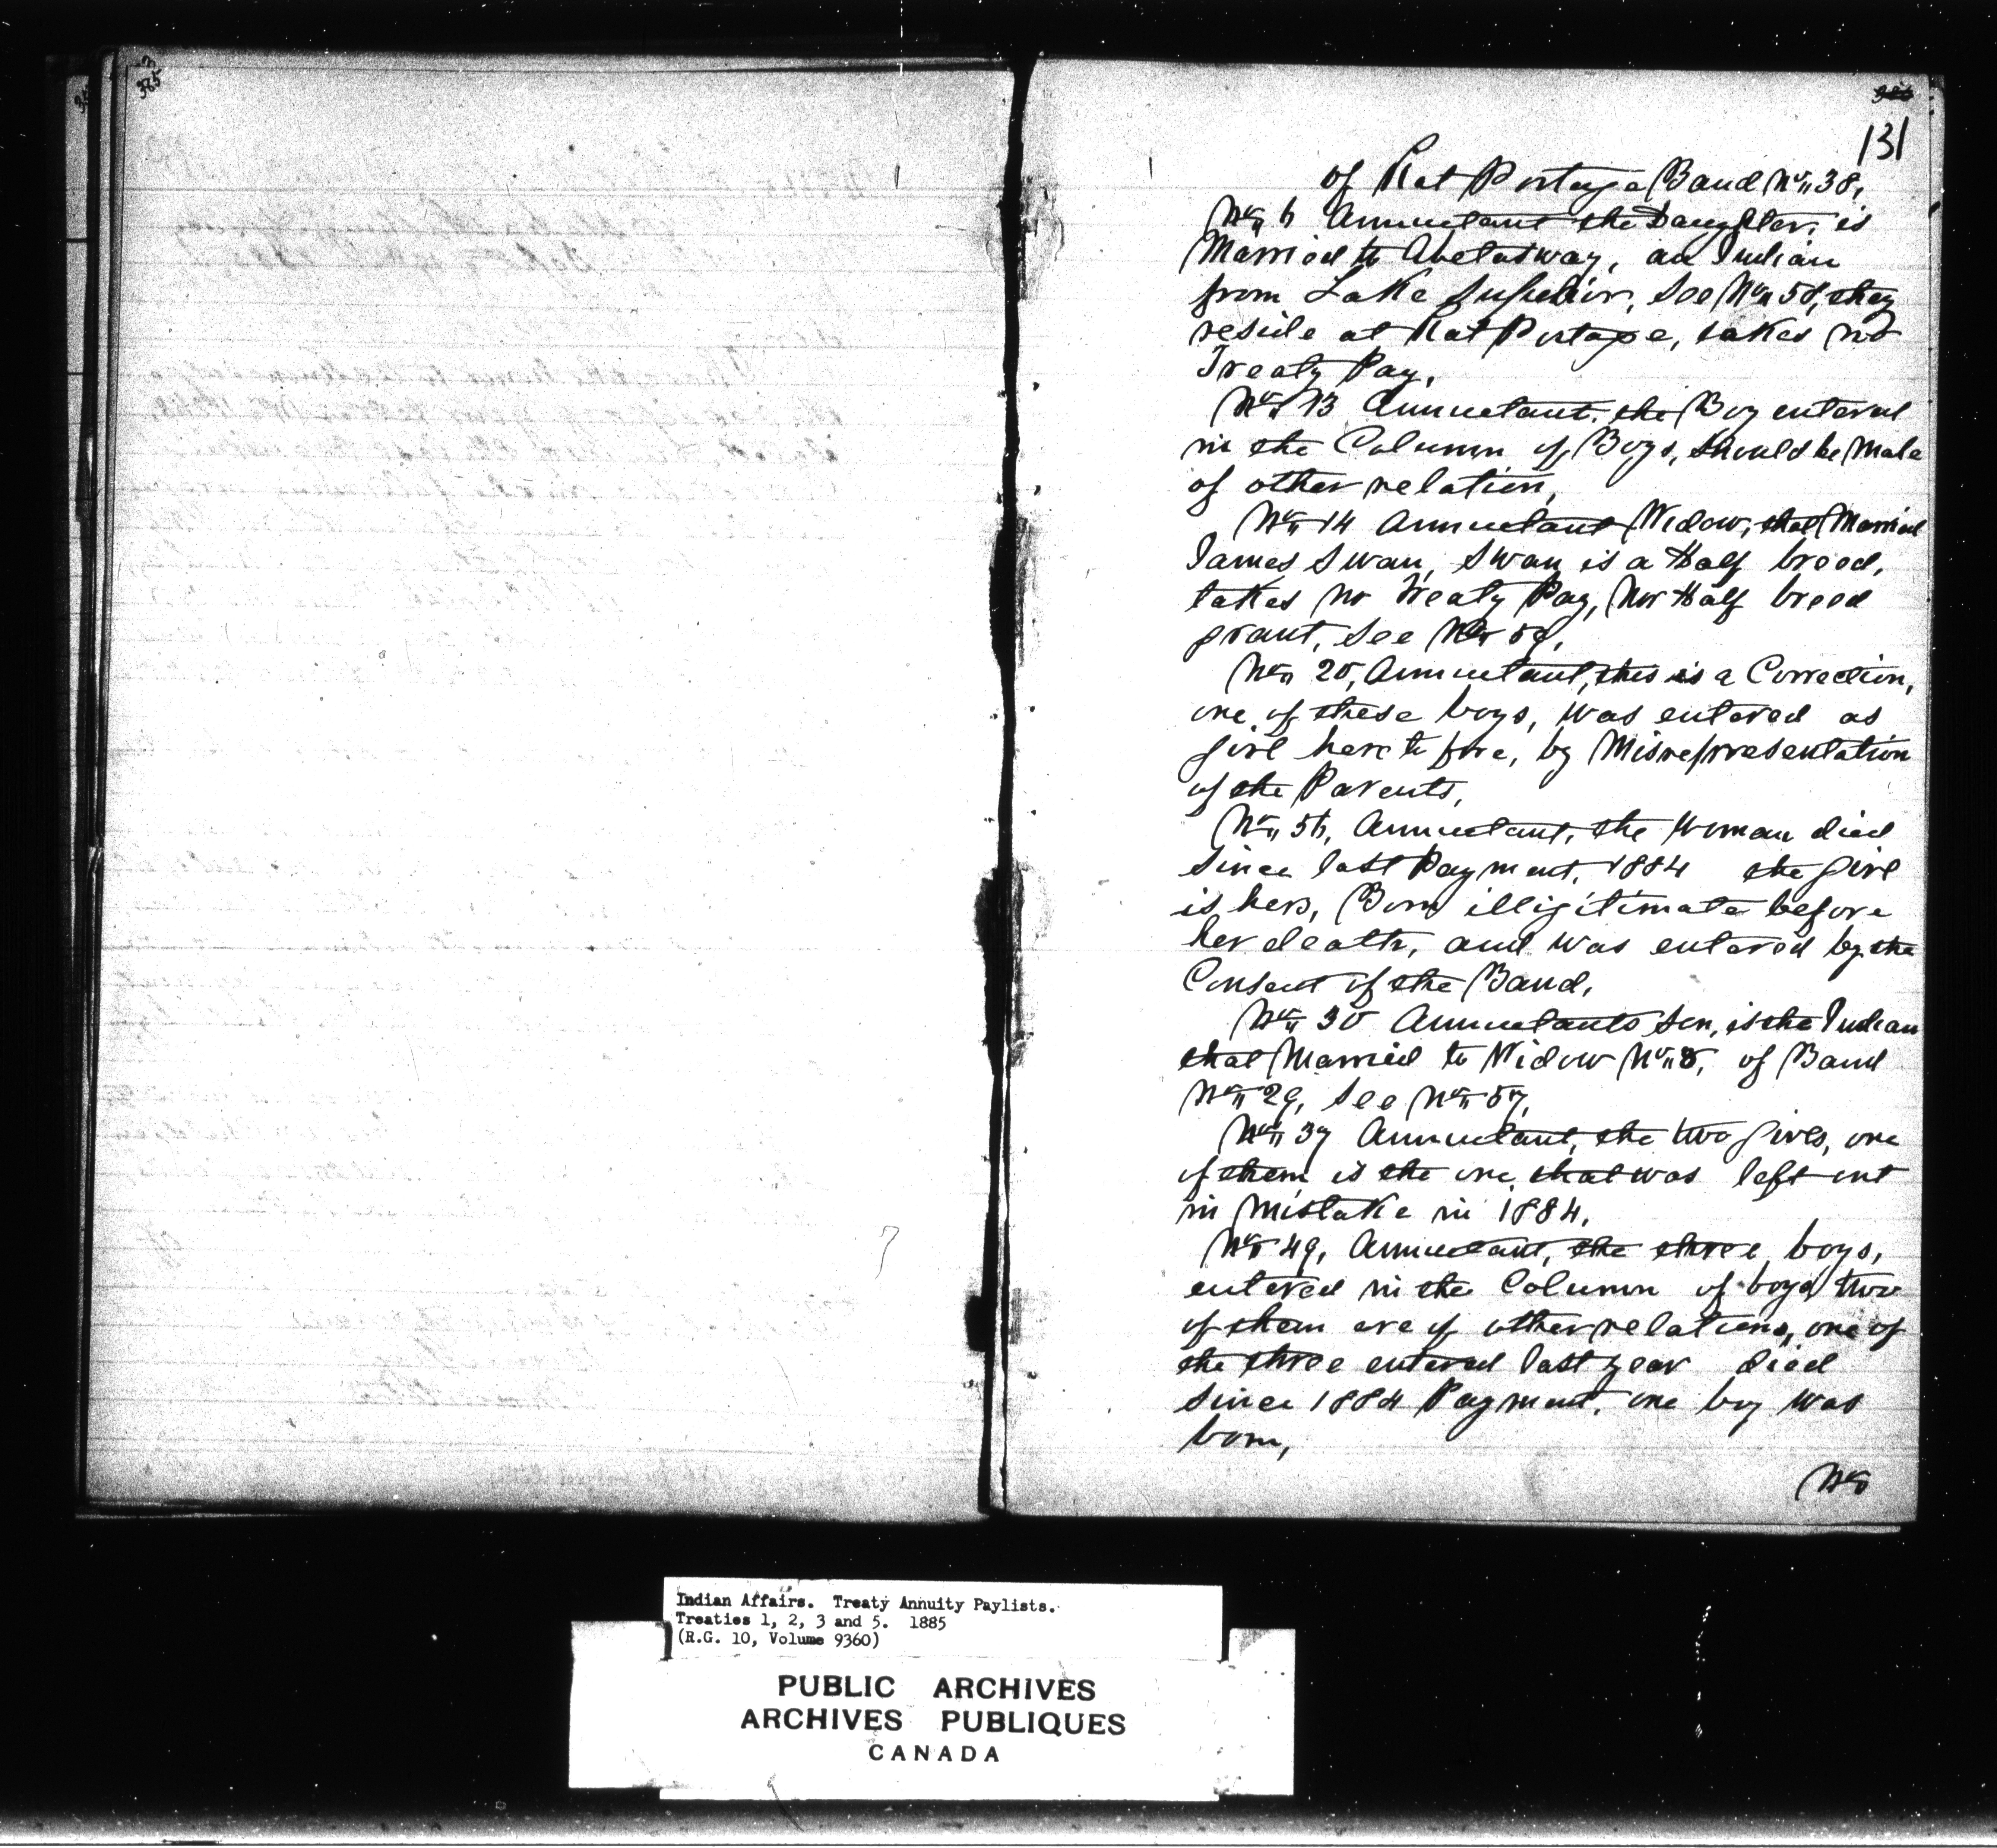 385
386
131
of Rat Portage Band No 38,
No 6 Annuetant the Daughter, is
Married to Abelasway, an Indian
from Lake Superior, See No 58, they
reside at Rat Portage, takes no
Treaty Pay,
No 13 Annuetant, the Boy entered
in the Column of Boys, should be Male
of other relation,
No 14 Annuetant Widow, that Married
James Swan, Swan is a Half breed,
takes no Treaty Pay, Nor Half breed
grant, See No 59,
No 20, Annuetant, this is a Correction,
one of these boys, was entered as
girl heretofore, by Misrepresentation
of the Parents,
No 56, Annuetant, the Woman died
Since last Payment, 1884 the girl
is hers, Born illigitimate before
her death, and was entered by the
Consent of the Band,
No 30 Annuetants Son, is the Indian
that Married to Widow No 8, of Band
No 29, See No 57,
No 37 Annuetant, the two girls, one
of them is the one that was left out
in Mistake in 1884,
No 49, Annuetant, the three boys,
entered in the Column of boys two
of them are of other relations, one of
the three entered last year died
Since 1884 Payment, one boy was
born,
No
Indian Affairs. Treaty Annuity Paylists.
Treaties 1, 2, 3 and 5. 1885
(R.G. 10, Volume 9360)
PUBLIC ARCHIVES
ARCHIVES PUBLIQUES
CANADA